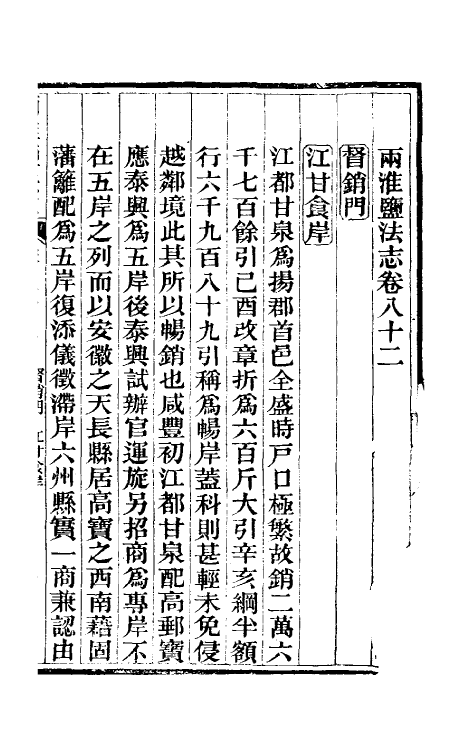 兩淮鹽法志卷八十二
督銷門
江甘食岸
江都甘泉爲揚郡首邑全盛時戸口極繁故銷二萬六
千七百餘引己酉改章折爲六百斤大引辛亥綱半額
行六千九百八十九引稱爲暢岸蓋科則甚輕未免侵
越鄰境此其所以暢銷也咸豐初江都甘泉配高郵寶
應泰興爲五岸後泰興試辦官運旋另招商爲專岸不
在五岸之列而以安徽之天長縣居高寶之西南藉固
藩籬配爲五岸復添儀徵滯岸六州縣實一商兼認由